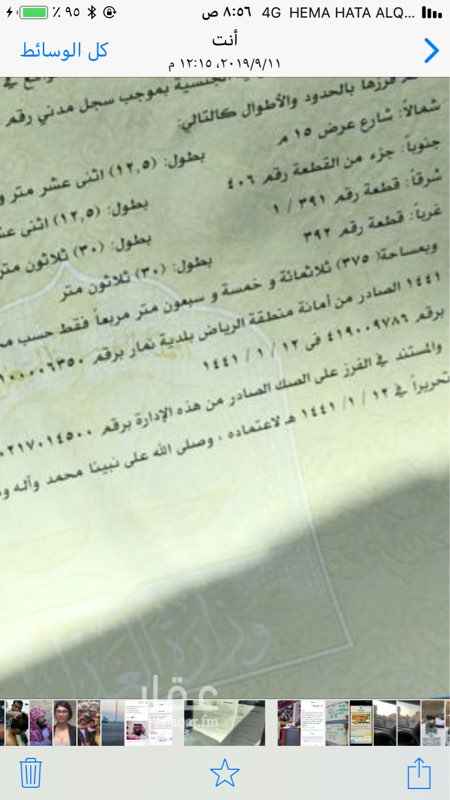 HEMA HATA ALQ... 4G ٨:٥٦ ص ٩٥ ٪
أنت
كل الوسائط
٢٠١٩/٩/١١، ١٢:١٥ م
الجنسية بموجب سجل مدني رقم
فرزها بالحدود والأطوال كالتالي:
شمالاً: شارع عرض ١٥ م بطول: (١٢,٥) اثنى عشر متر و
جنوباً: جزء من القطعة رقم ٤٠٦ بطول: (١٢,٥) اثنى عش
شرقاً: قطعة رقم ٣٩١ / ١ بطول: (٣٠) ثلاثون متر
غرباً: قطعة رقم ٣٩٢ بطول: (٣٠) ثلاثون متر
وبمساحة( ٣٧٥) ثلاثمائة و خمسة و سبعون متر مربعاً فقط حسب
١٤٤١ الصادر من أمانة منطقة الرياض بلدية نمار برقم
برقم ٤١٩٠٠٩٧٨٦ فى ١٢ / ١ / ١٤٤١
والمستند في الفرز على الصك الصادر من هذه الإدارة برقم
تحريراً في ١٢ / ١ / ١٤٤١ هـ لاعتماده ، وصلى الله على نبينا محمد وآله
وزارة العدل
عقار
aqar.fm